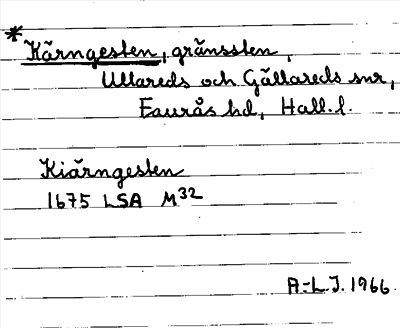 * Kärngesten, gränssten,
Ullareds och Gällareds snr,
Faurås hd, Hall. l.
Kiärngesten
1675 LSA M32
A-L.J. 1966.